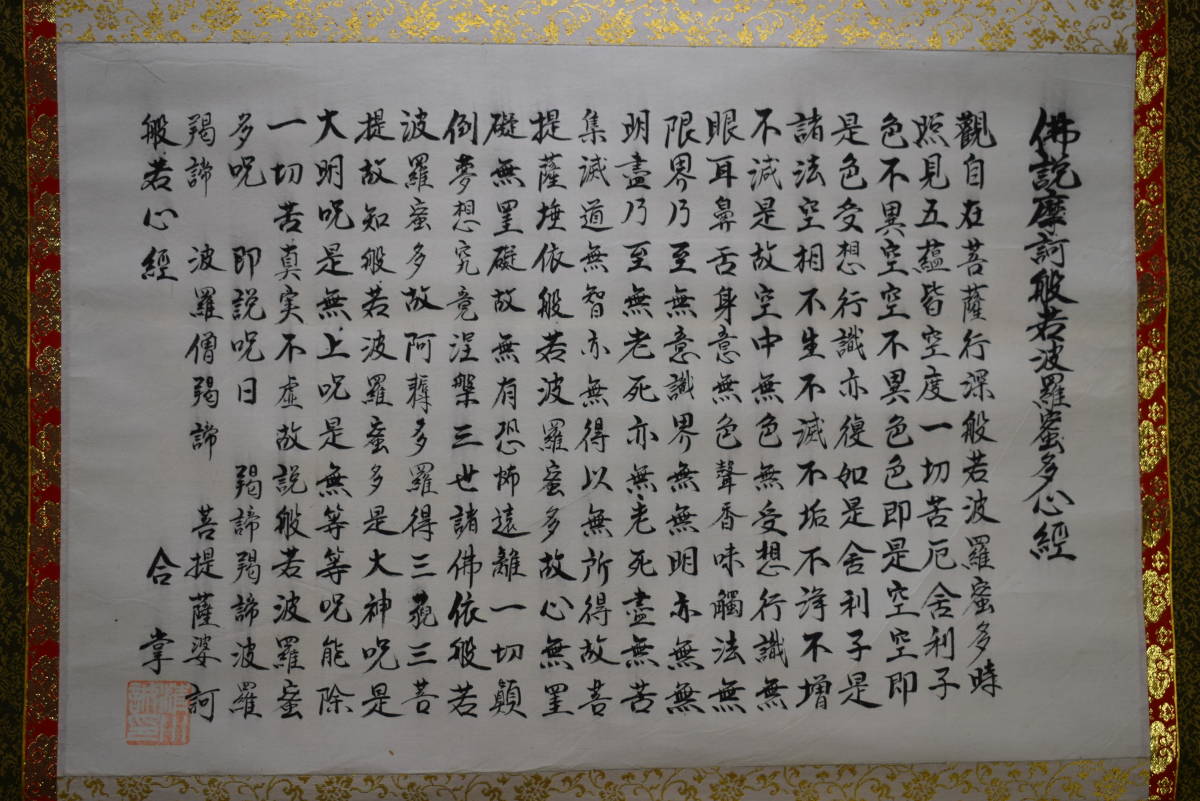 佛説摩訶般若波羅蜜多心經
觀自在菩薩行深般若波羅蜜多時
照見五蘊皆空度一切苦厄舍利子
色不異空空不異色色即是空空即
是色受想行識亦復如是舍利子是
諸法空相不生不滅不垢不淨不增
不減是故空中無色無受想行識無
眼耳鼻舌身意無色聲香味觸法無
限界乃至無意識界無無明亦無無
明盡乃至無老死亦無老死盡無苦
集滅道無智亦無得以無所得故菩
提薩埵依般若波羅蜜多故心無罣
礙無罣礙故無有恐怖遠離一切顛
倒夢想究竟涅槃三世諸佛依般若
波羅蜜多故阿耨多羅得三藐三菩
提故知般若波羅蜜多是大神呪是
大明呪是無上呪是無等等呪能除
一切苦真実不虚故説般若波羅蜜
多呪 即説呪曰 羯諦羯諦波羅
羯諦 波羅僧羯諦 菩提薩婆訶
般若心經 合掌